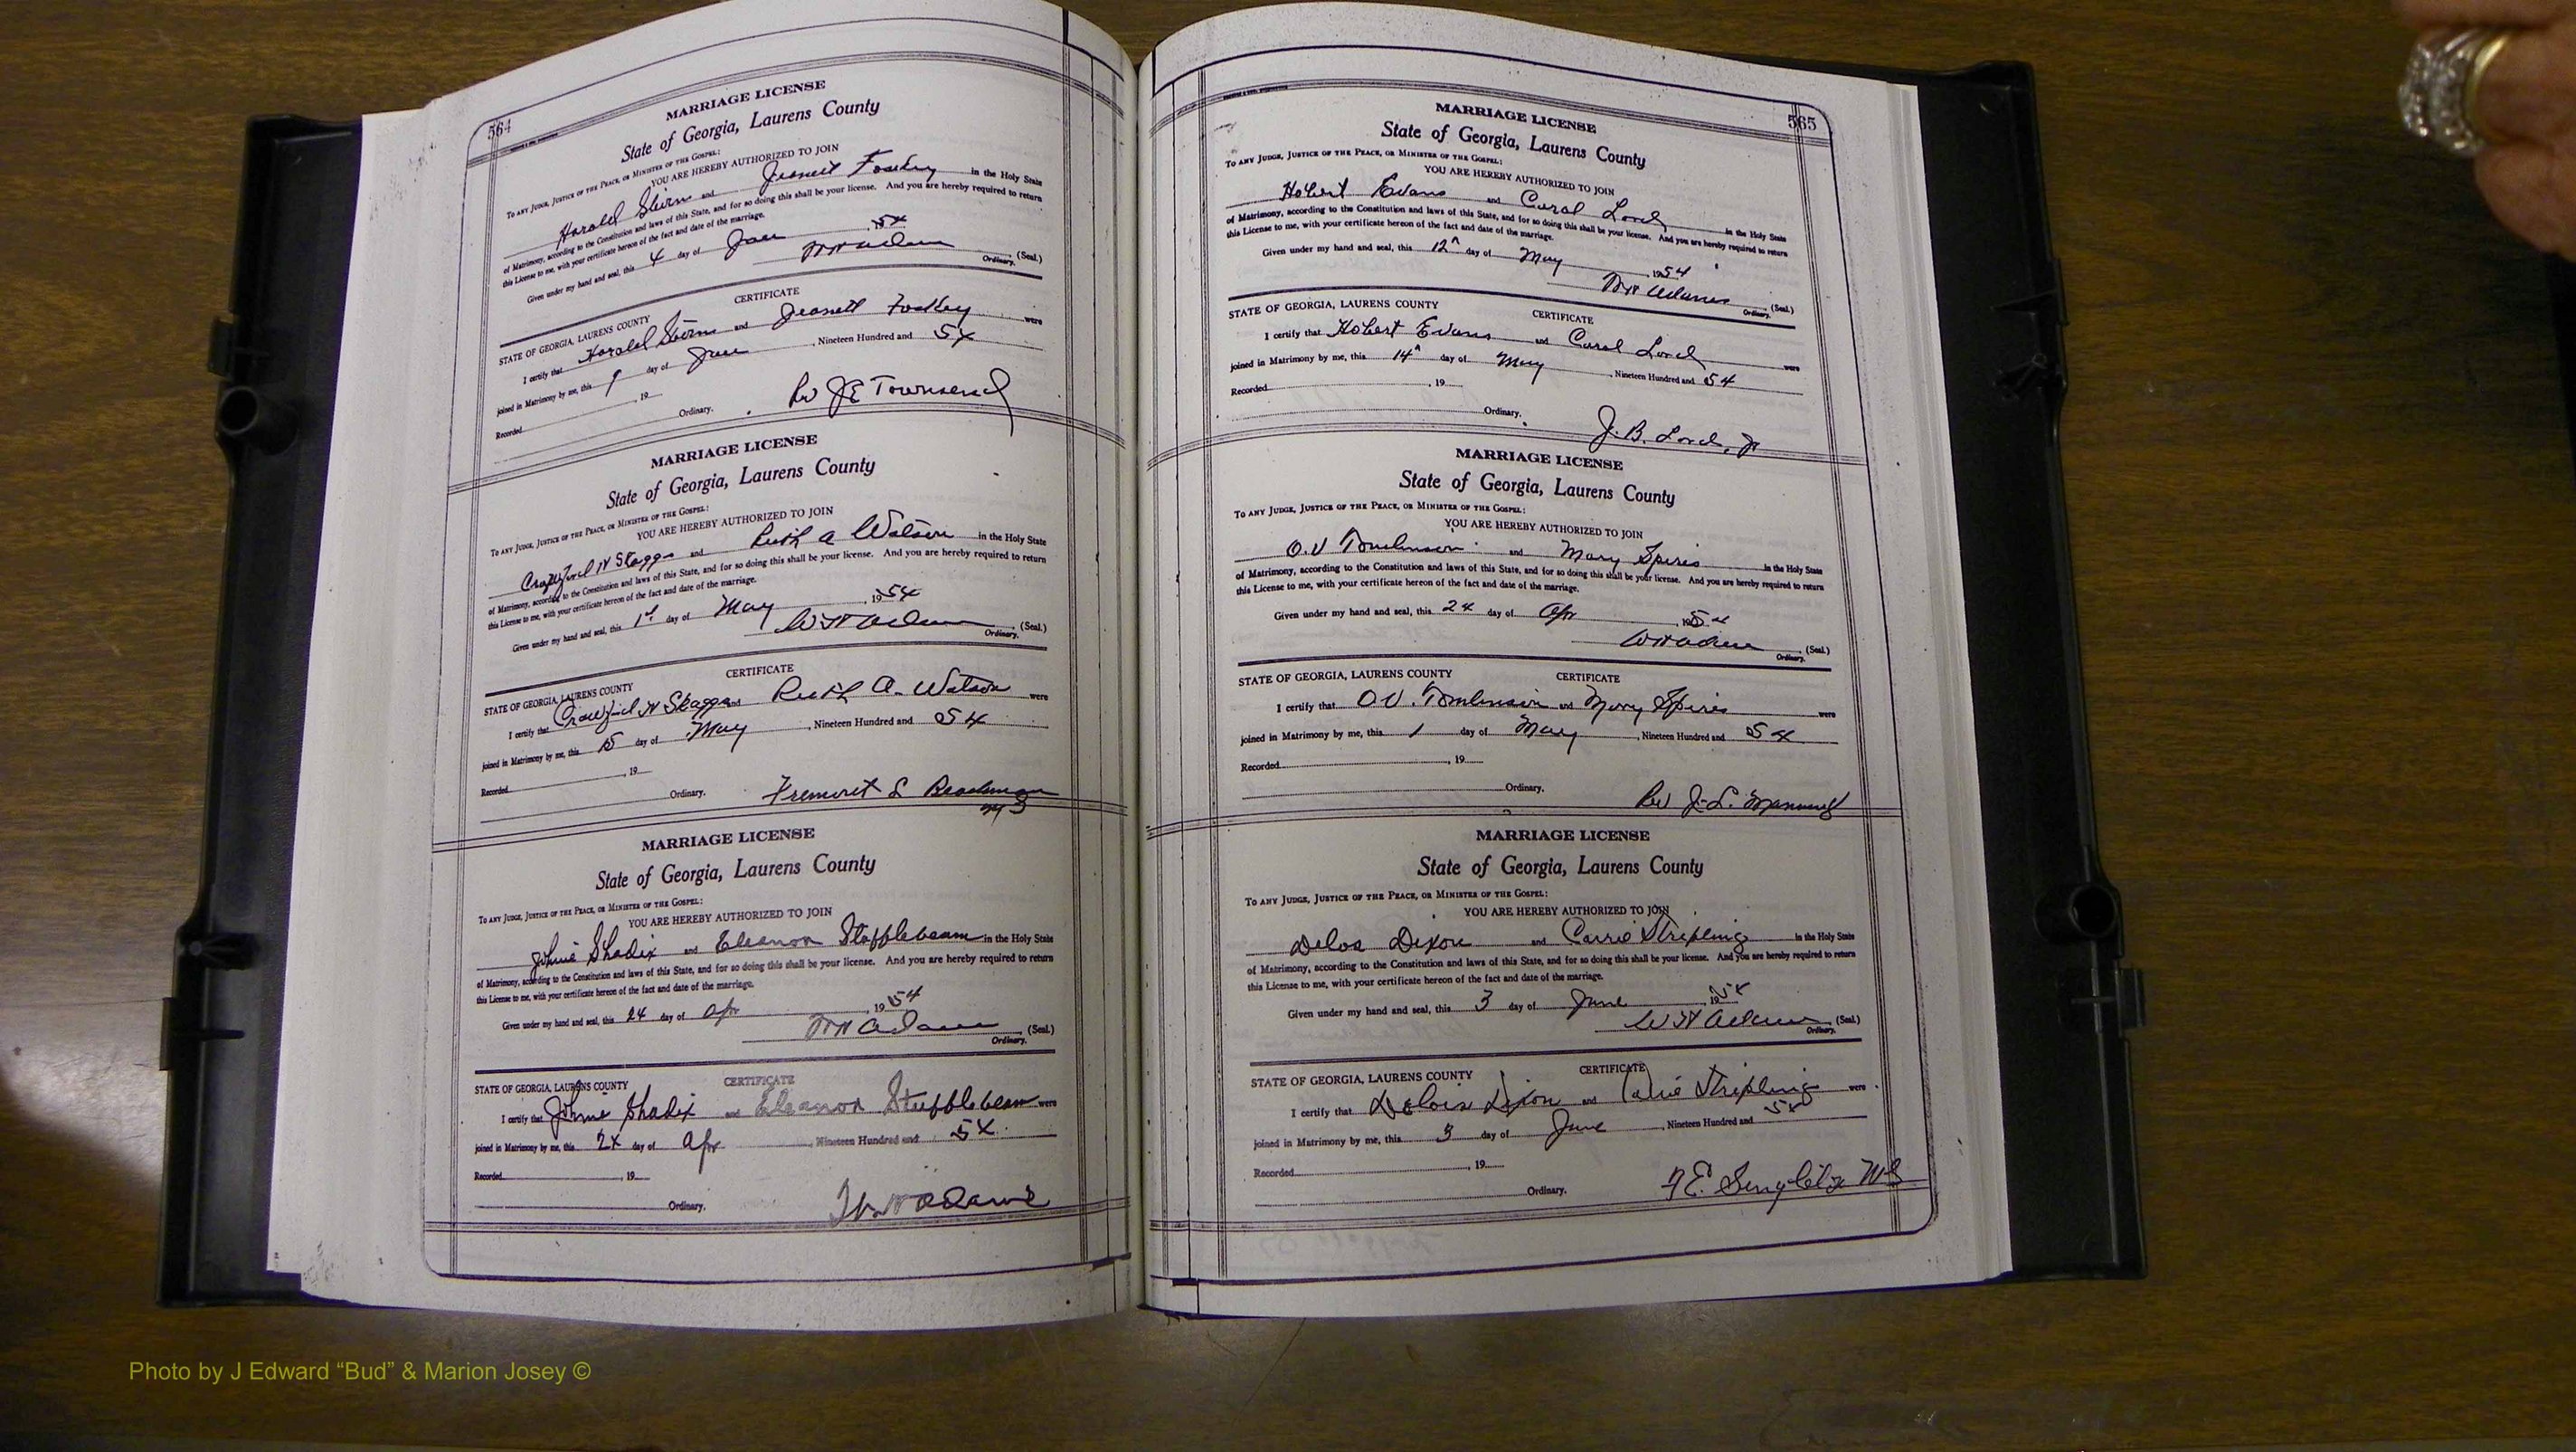 564
MARRIAGE LICENSE
State of Georgia, Laurens County
To any Judge, Justice of the Peace, or Minister of the Gospel:
YOU ARE HEREBY AUTHORIZED TO JOIN
Harold and Jeanett in the Holy State
of Matrimony, according to the Constitution and laws of this State, and for so doing this shall be your license. And you are hereby required to return
this License to me, with your certificate hereon of the fact and date of the marriage.
Given under my hand and seal, this 4 day of 54
(Seal.)
Ordinary.
CERTIFICATE
STATE OF GEORGIA, LAURENS COUNTY
I certify that Harold and Jeanett were
joined in Matrimony by me, this day of , Nineteen Hundred and 54
Recorded , 19
Ordinary. Rev JE Townsend
MARRIAGE LICENSE
State of Georgia, Laurens County
To any Judge, Justice of the Peace, or Minister of the Gospel:
YOU ARE HEREBY AUTHORIZED TO JOIN
Crawford N Skaggs and Ruth A Watson in the Holy State
of Matrimony, according to the Constitution and laws of this State, and for so doing this shall be your license. And you are hereby required to return
this License to me, with your certificate hereon of the fact and date of the marriage.
Given under my hand and seal, this 1st day of May , 1954
WH Adams (Seal.)
Ordinary.
CERTIFICATE
STATE OF GEORGIA, LAURENS COUNTY
I certify that Crawford N Skaggs and Ruth A. Watson were
joined in Matrimony by me, this 15 day of May , Nineteen Hundred and 54
Recorded , 19
Ordinary. L
MG
MARRIAGE LICENSE
State of Georgia, Laurens County
To any Judge, Justice of the Peace, or Minister of the Gospel:
YOU ARE HEREBY AUTHORIZED TO JOIN
Johnie Shadix and Eleanor Stufflebeam in the Holy State
of Matrimony, according to the Constitution and laws of this State, and for so doing this shall be your license. And you are hereby required to return
this License to me, with your certificate hereon of the fact and date of the marriage.
Given under my hand and seal, this 24 day of Apr , 1954
WH Adams (Seal.)
Ordinary.
CERTIFICATE
STATE OF GEORGIA, LAURENS COUNTY
I certify that Johnie Shadix and Eleanor Stufflebeam were
joined in Matrimony by me, this 24 day of Apr , Nineteen Hundred and 54
Recorded , 19
Ordinary. WH Adams
565
MARRIAGE LICENSE
State of Georgia, Laurens County
To any Judge, Justice of the Peace, or Minister of the Gospel:
YOU ARE HEREBY AUTHORIZED TO JOIN
Hobert Evans and Carol Lord in the Holy State
of Matrimony, according to the Constitution and laws of this State, and for so doing this shall be your license. And you are hereby required to return
this License to me, with your certificate hereon of the fact and date of the marriage.
Given under my hand and seal, this 12 day of May , 1954
WH Adams (Seal.)
Ordinary.
CERTIFICATE
STATE OF GEORGIA, LAURENS COUNTY
I certify that Hobert Evans and Carol Lord were
joined in Matrimony by me, this 14 day of May , Nineteen Hundred and 54
Recorded , 19
Ordinary. J. B. Lord, Jr
MARRIAGE LICENSE
State of Georgia, Laurens County
To any Judge, Justice of the Peace, or Minister of the Gospel:
YOU ARE HEREBY AUTHORIZED TO JOIN
O.V Tomlinson and Mary Spires in the Holy State
of Matrimony, according to the Constitution and laws of this State, and for so doing this shall be your license. And you are hereby required to return
this License to me, with your certificate hereon of the fact and date of the marriage.
Given under my hand and seal, this 24 day of Apr , 1954
WH Adams (Seal.)
Ordinary.
CERTIFICATE
STATE OF GEORGIA, LAURENS COUNTY
I certify that O.V. Tomlinson and Mary Spires were
joined in Matrimony by me, this 1 day of May , Nineteen Hundred and 54
Recorded , 19
Ordinary. Rev J. L.
MARRIAGE LICENSE
State of Georgia, Laurens County
To any Judge, Justice of the Peace, or Minister of the Gospel:
YOU ARE HEREBY AUTHORIZED TO JOIN
Delos Dixon and Carrie Stripling in the Holy State
of Matrimony, according to the Constitution and laws of this State, and for so doing this shall be your license. And you are hereby required to return
this License to me, with your certificate hereon of the fact and date of the marriage.
Given under my hand and seal, this 3 day of June , 1954
WH Adams (Seal.)
Ordinary.
CERTIFICATE
STATE OF GEORGIA, LAURENS COUNTY
I certify that Dixon and Stripling were
joined in Matrimony by me, this 3 day of June , Nineteen Hundred and 54
Recorded , 19
Ordinary. MG
Photo by J Edward “Bud” & Marion Josey ©